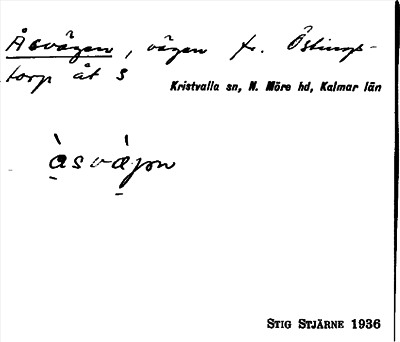 Åsvägen, vägen fr. Östings-
torp åt S
Kristvalla sn, N. Möre hd, Kalmar län
àsvägən
STIG STJÄRNE 1936